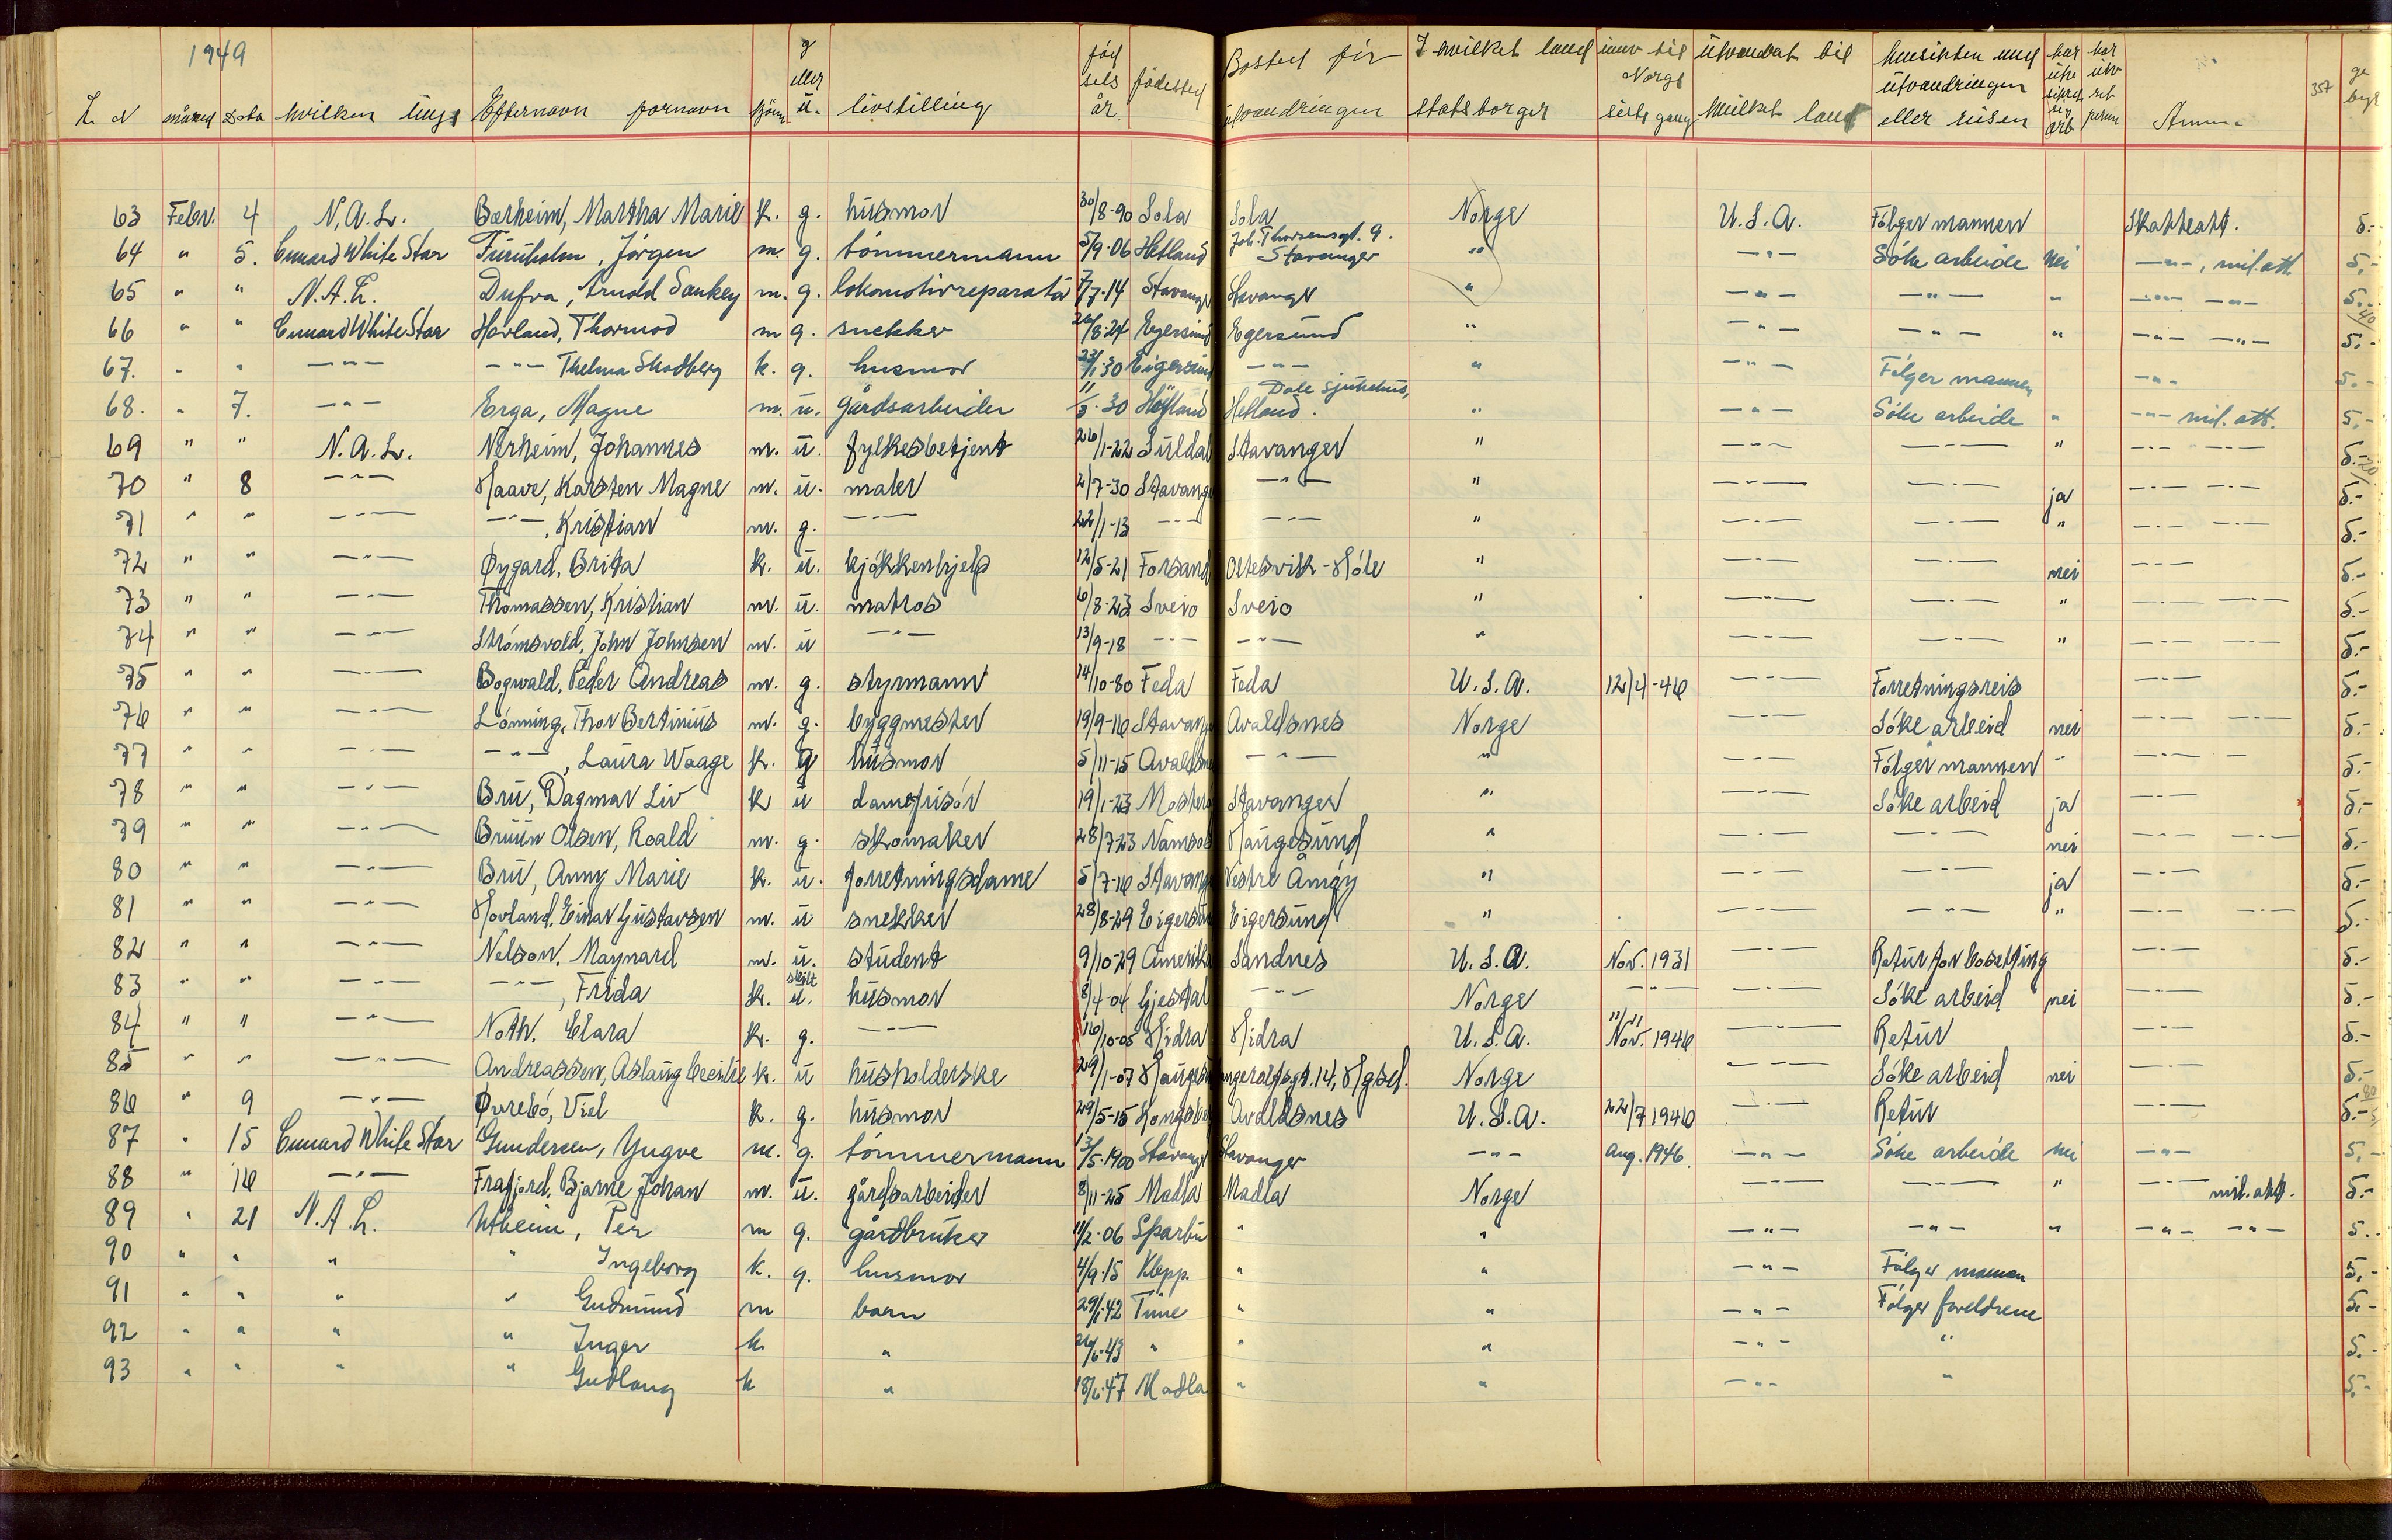 1949
L N måned Dato hvilken linje Efternavn fornavn kjönn g eller u. livstilling födselsår. födested Bosted för utvandringen I hvilket land statsborger innv til Norge siste gang utvandret til hvilket land Hensikten med utvandringen eller reisen har utv 357
63 Febr. 4 N.A.L. Bærheim, Martha Marie k. g. husmor 30/8-90 Sola Sola Norge U.S.A. Fölger mannen Skatteatt. 5.-
64 " 5. Cunard White Star Furuholm, Jörgen m. g. tömmermann 5/9-06 Hetland Joh. Thorsensgt. 9. Stavanger " -"- Söke arbeide nei -"-, mil.att. 5.-
65 " " N.A.L. Dufva, Arnold Sankey m. g. lokomotivreparatör 7/7-14 Stavanger Stavanger " -"- -"- " -"- -"- 5.-
66 " " Cunard White Star Hovland, Thormod m g. snekker 26/8-24 Egersund Egersund " -"- -"- " -"- -"- 5.-
67. " " -"- -"- Thelma Skadberg k. g. husmor 23/1-30 Eigersund -"- " -"- Fölger mannen -"- 5.-
68. " 7. -"- Erga, Magne m. u. gårdsarbeider 11/3-30 Høyland Dale Sjukehus, Hetland. " -"- Söke arbeide " -"- mil. att. 5.-
69 " " N.A.L. Nerheim, Johannes m. u. fylkesbetjent 26/1-22 Suldal Stavanger " -"- -"- " -"- -"- 5.-
70 " 8 -"- Haave, Karsten Magne m. u. maler 2/7-30 Stavanger -"- " -"- -"- ja -"- -"- 5.-
71 " " -"- -"-, Kristian m. g. -"- 22/1-13 -"- -"- " -"- -"- " -"- -"- 5.-
72 " " -"- Øygard, Brita k. u. kjökkenhjelp 12/5-21 Forsand Oltesvik - Höle " -"- -"- nei -"- 5.-
73 " " -"- Thomassen, Kristian m. u. matros 6/8-23 Sveio Sveio " -"- -"- " -"- -"- 5.-
74 " " -"- Strömsvold, John Johnsen m. u -"- 13/9-18 -"- -"- " -"- -"- " -"- -"- 5.-
75 " " -"- Bogwald, Peder Andreas m. g. styrmann 14/10-80 Feda Feda U.S.A. 12/4-46 -"- Forretningsreis 5.-
76 " " -"- Lönning, Thor Bertinius m. g. byggmester 19/9-16 Stavanger Avaldsnes Norge -"- Söke arbeid nei -"- -"- 5.-
77 " " -"- -"-, Laura Waage k. g husmor 5/11-15 Avaldsnes -"- " -"- Fölger mannen " -"- 5.-
78 " " -"- Bru, Dagmar Liv k u damefrisör 19/1-23 Moster Stavanger " -"- Söke arbeid ja -"- 5.-
79 " " -"- Bruun Olsen, Roald m. g. skomaker 28/7-23 Namsos Haugesund " -"- -"- nei -"- -"- 5.-
80 " " -"- Bru, Anny Marie k. u. forretningsdame 5/7-16 Stavanger Vestre Åmöy " -"- -"- ja -"- 5.-
81 " " -"- Hovland, Einar Gustavsen m. u snekker 28/8-29 Eigersund Eigersund " -"- -"- " -"- -"- 5.-
82 " " -"- Nelson, Maynard m. u. student 9/10-29 Amerika Sandnes U.S.A. Nov. 1931 -"- Retur for bosetting -"- 5.-
83 " " -"- -"-, Frida k. skilt u. husmor 8/4-04 Gjestal -"- Norge -"- -"- Söke arbeid nei -"- 5.-
84 " " -"- Noth, Clara k. g. -"- 16/10-05 Hidra Hidra U.S.A. 11/11 Nov. 1946 -"- Retur -"- 5.-
85 " " -"- Andreassen, Aslaug Cecilie k. u husholderske 29/1-07 14, Hgsd. Norge -"- Söke arbeid nei -"- 5.-
86 " 9 -"- Øvrebö, Viel k. g. husmor 29/5-15 Kongsberg Avaldsnes U.S.A. 22/7 1946 -"- Retur -"- 5.-
87 " 15 Cunard White Star Gundersen, Yngve m. g. tömmermann 13/5-1900 Stavanger Stavanger -"- Aug. 1946. -"- Söke arbeide nei -"- 5.-
88 " 16 -"- Frafjord, Bjarne Johan m. u. gårdsarbeider 8/11-25 Madla Madla Norge -"- -"- " -"- mil. att. 5.-
89 " 21 N.A.L. Utheim, Per m g. gårdbruker 11/2-06 Sparbu " " -"- -"- " -"- -"- 5.-
90 " " " " Ingeborg k. g. husmor 4/9-15 Klepp. " " -"- Fölger mannen 5.-
91 " " " " Gudmund m barn 29/1-42 Time " " -"- Fölger foreldrene 5.-
92 " " " " Inger k. " 26/6-43 " " " -"- " 5.-
93 " " " " Gudlaug k " 18/6-47 Madla " " -"- " 5.-